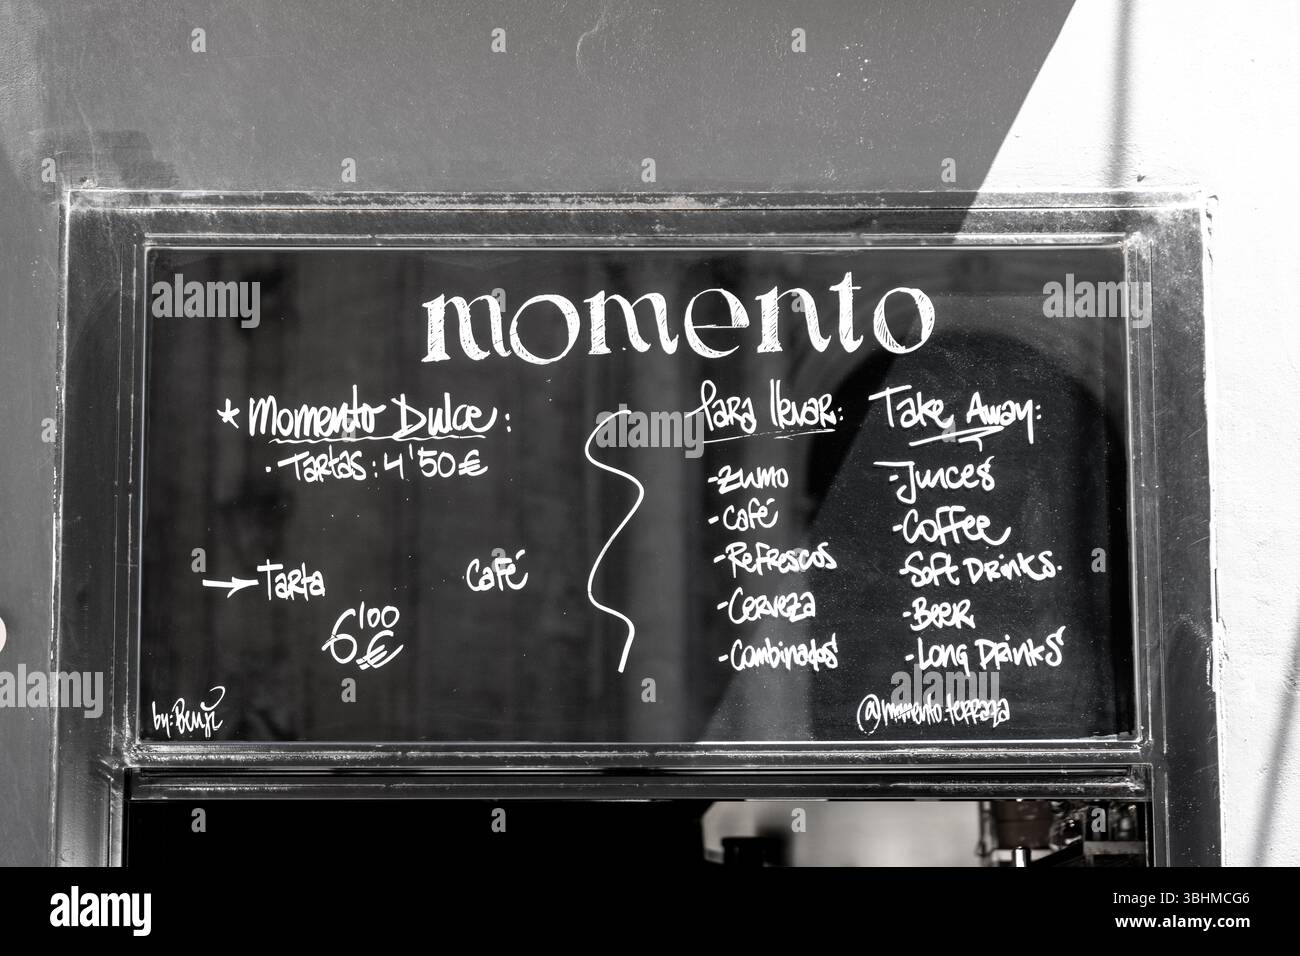 momento
★ Momento Dulce:
· Tartas: 4'50€
→ Tarta Café
6'00€
by: Benji
Para llevar:
- Zumo
- Café
- Refrescos
- Cerveza
- Combinados
Take Away:
- Juices
- Coffee
- Soft Drinks.
- Beer
- Long Drinks
@momento.terraza
alamy
Image ID: 3BHMCG6
www.alamy.com